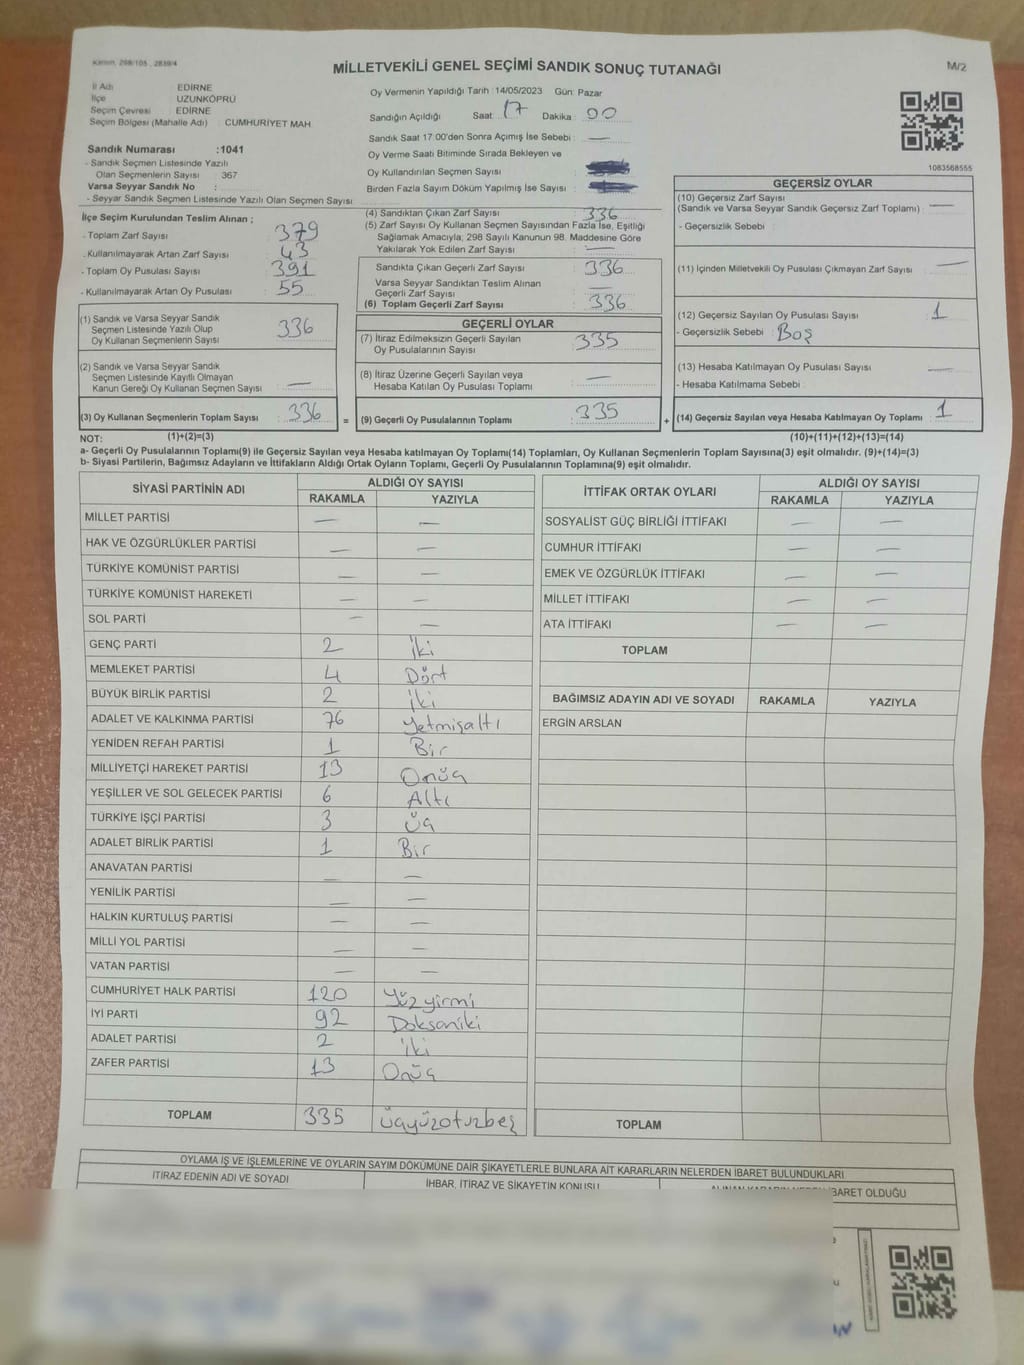 Kanun, 298/105 , 2839/4
MİLLETVEKİLİ GENEL SEÇİMİ SANDIK SONUÇ TUTANAĞI
M/2
İl Adı : EDİRNE
İlçe : UZUNKÖPRÜ
Seçim Çevresi : EDİRNE
Seçim Bölgesi (Mahalle Adı) : CUMHURİYET MAH.
Sandık Numarası :1041
- Sandık Seçmen Listesinde Yazılı
Olan Seçmenlerin Sayısı : 367
Varsa Seyyar Sandık No :
- Seyyar Sandık Seçmen Listesinde Yazılı Olan Seçmen Sayısı :
Oy Vermenin Yapıldığı Tarih :14/05/2023 Gün: Pazar
Sandığın Açıldığı Saat : 17 Dakika : 00
Sandık Saat 17:00'den Sonra Açımış İse Sebebi : —
Oy Verme Saati Bitiminde Sırada Bekleyen ve
Oy Kullandırılan Seçmen Sayısı :
Birden Fazla Sayım Döküm Yapılmış İse Sayısı :
1083568555
İlçe Seçim Kurulundan Teslim Alınan ;
- Toplam Zarf Sayısı : 379
- Kullanılmayarak Artan Zarf Sayısı : 43
- Toplam Oy Pusulası Sayısı : 391
- Kullanılmayarak Artan Oy Pusulası : 55
(1) Sandık ve Varsa Seyyar Sandık
Seçmen Listesinde Yazılı Olup
Oy Kullanan Seçmenlerin Sayısı : 336
(2) Sandık ve Varsa Seyyar Sandık
Seçmen Listesinde Kayıtlı Olmayan
Kanun Gereği Oy Kullanan Seçmen Sayısı : —
(3) Oy Kullanan Seçmenlerin Toplam Sayısı : 336 =
(4) Sandıktan Çıkan Zarf Sayısı : 336
(5) Zarf Sayısı Oy Kullanan Seçmen Sayısından Fazla İse, Eşitliği
Sağlamak Amacıyla; 298 Sayılı Kanunun 98. Maddesine Göre
Yakılarak Yok Edilen Zarf Sayısı : —
Sandıkta Çıkan Geçerli Zarf Sayısı : 336
Varsa Seyyar Sandıktan Teslim Alınan
Geçerli Zarf Sayısı : —
(6) Toplam Geçerli Zarf Sayısı : 336
GEÇERLİ OYLAR
(7) İtiraz Edilmeksizin Geçerli Sayılan
Oy Pusulalarının Sayısı : 335
(8) İtiraz Üzerine Geçerli Sayılan veya
Hesaba Katılan Oy Pusulası Toplamı : —
(9) Geçerli Oy Pusulalarının Toplamı : 335 +
GEÇERSİZ OYLAR
(10) Geçersiz Zarf Sayısı
(Sandık ve Varsa Seyyar Sandık Geçersiz Zarf Toplamı) : —
- Geçersizlik Sebebi :
(11) İçinden Milletvekili Oy Pusulası Çıkmayan Zarf Sayısı : —
(12) Geçersiz Sayılan Oy Pusulası Sayısı : 1
- Geçersizlik Sebebi : Boş
(13) Hesaba Katılmayan Oy Pusulası Sayısı : —
- Hesaba Katılmama Sebebi :
(14) Geçersiz Sayılan veya Hesaba Katılmayan Oy Toplamı : 1
NOT: (1)+(2)=(3) (10)+(11)+(12)+(13)=(14)
a- Geçerli Oy Pusulalarının Toplamı(9) ile Geçersiz Sayılan veya Hesaba katılmayan Oy Toplamı(14) Toplamları, Oy Kullanan Seçmenlerin Toplam Sayısına(3) eşit olmalıdır. (9)+(14)=(3)
b- Siyasi Partilerin, Bağımsız Adayların ve İttifakların Aldığı Ortak Oyların Toplamı, Geçerli Oy Pusulalarının Toplamına(9) eşit olmalıdır.
SİYASİ PARTİNİN ADI ALDIĞI OY SAYISI
RAKAMLA YAZIYLA
MİLLET PARTİSİ — —
HAK VE ÖZGÜRLÜKLER PARTİSİ — —
TÜRKİYE KOMÜNİST PARTİSİ — —
TÜRKİYE KOMÜNİST HAREKETİ — —
SOL PARTİ — —
GENÇ PARTİ 2 İki
MEMLEKET PARTİSİ 4 Dört
BÜYÜK BİRLİK PARTİSİ 2 İki
ADALET VE KALKINMA PARTİSİ 76 Yetmişaltı
YENİDEN REFAH PARTİSİ 1 Bir
MİLLİYETÇİ HAREKET PARTİSİ 13 Onüç
YEŞİLLER VE SOL GELECEK PARTİSİ 6 Altı
TÜRKİYE İŞÇİ PARTİSİ 3 Üç
ADALET BİRLİK PARTİSİ 1 Bir
ANAVATAN PARTİSİ — —
YENİLİK PARTİSİ — —
HALKIN KURTULUŞ PARTİSİ — —
MİLLİ YOL PARTİSİ — —
VATAN PARTİSİ — —
CUMHURİYET HALK PARTİSİ 120 Yüzyirmi
İYİ PARTİ 92 Doksaniki
ADALET PARTİSİ 2 İki
ZAFER PARTİSİ 13 Onüç
TOPLAM 335 üçyüzotuzbeş
İTTİFAK ORTAK OYLARI ALDIĞI OY SAYISI
RAKAMLA YAZIYLA
SOSYALİST GÜÇ BİRLİĞİ İTTİFAKI — —
CUMHUR İTTİFAKI — —
EMEK VE ÖZGÜRLÜK İTTİFAKI — —
MİLLET İTTİFAKI — —
ATA İTTİFAKI — —
TOPLAM
BAĞIMSIZ ADAYIN ADI VE SOYADI RAKAMLA YAZIYLA
ERGİN ARSLAN
TOPLAM
OYLAMA İŞ VE İŞLEMLERİNE VE OYLARIN SAYIM DÖKÜMÜNE DAİR ŞİKAYETLERLE BUNLARA AİT KARARLARIN NELERDEN İBARET BULUNDUKLARI
İTİRAZ EDENİN ADI VE SOYADI
İHBAR, İTİRAZ VE ŞİKAYETİN KONUSU
İBARET OLDUĞU